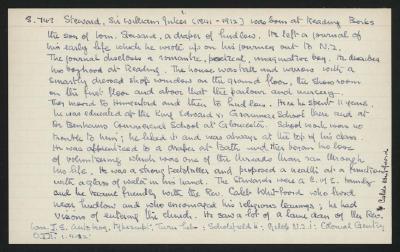 S.743 Steward, Sir William Jukes (1841-1912) was born at Reading Berks
the son of Wm. Steward, a draper of Ludlow. He left a journal of
his early life which he wrote up on his journey out to N.Z.
The journal discloses a romantic, poetical, imaginative boy. He describes
his boyhood at Reading. The house was tall and narrow with a
smartly dressed shop window on the ground floor, the showroom
on the first floor and above that the parlour and nursery.
They moved to Hereford and then to Ludlow. Here he spent 11 years.
he was educated at the King Edward VI Grammar School here and at
Dr Benhams Commercial School at Gloucester. School work was no
trouble to him; he liked it and was always at the top of his class.
He was apprenticed to a draper at Bath and then began his love
of volunteering which was one of the threads that ran through
his life. He was a strong teetotaller and proposed a health at a function
with a glass of water in his hand. The Stewards were a C. of E. family
and he became friendly with the Rev. Caleb Whitfoord who lived
near Ludlow and who encouraged his religious leanings; he had
visions of entering the church. He saw a lot of a lame dau. of the Rev.
Caleb Whitfoord